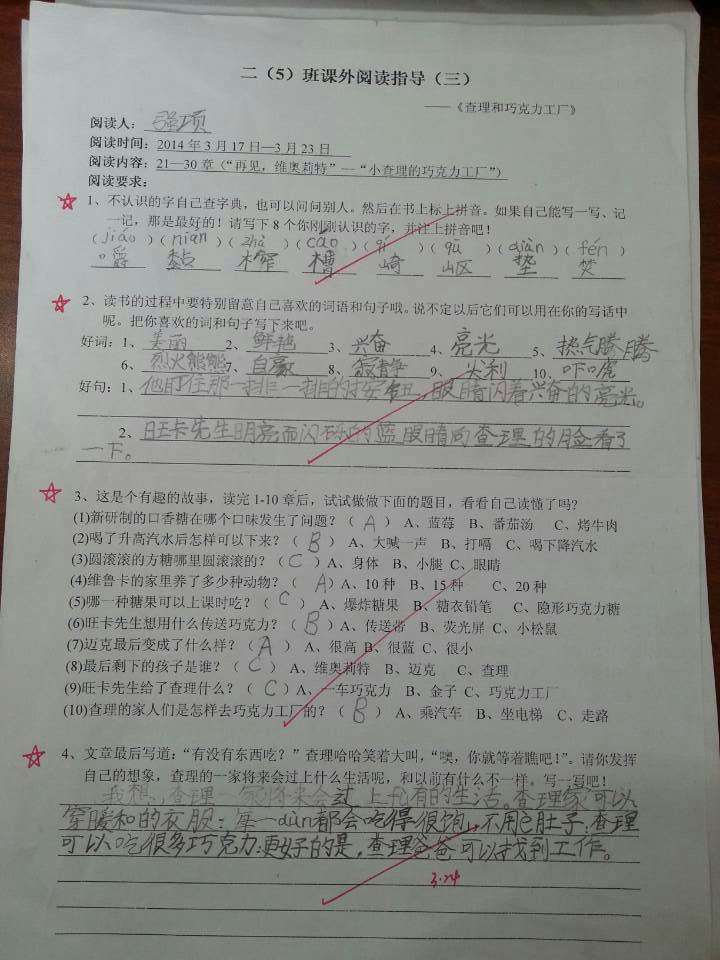 二（5）班课外阅读指导（三）
——《查理和巧克力工厂》
阅读人：强项
阅读时间：2014年3月17日—3月23日
阅读内容：21—30章（“再见，维奥莉特”—“小查理的巧克力工厂”）
阅读要求：
1、不认识的字自己查字典，也可以问问别人。然后在书上标上拼音。如果自己能写一写、记
一记，那是最好的！请写下8个你刚刚认识的字，并注上拼音吧！
（jiáo）（nián）（zhà）（cáo）（qí）（qū）（diàn）（fén）
嚼 黏 榨 槽 崎 岖 垫 焚
2、读书的过程中要特别留意自己喜欢的词语和句子哦。说不定以后它们可以用在你的写话中
呢。把你喜欢的词和句子写下来吧。
好词：1、美丽 2、鲜艳 3、兴奋 4、亮光 5、热气腾腾
6、烈火熊熊 7、自豪 8、寂静 9、尖利 10、吓唬
好句：1、他盯住那一排一排的按钮，眼睛闪着兴奋的亮光。
2、旺卡先生明亮而闪烁的蓝眼睛向查理的脸看了
一下。
3、这是个有趣的故事，读完1-10章后，试试做做下面的题目，看看自己读懂了吗？
(1)新研制的口香糖在哪个口味发生了问题？（ A ） A、蓝莓 B、番茄汤 C、烤牛肉
(2)喝了升高汽水后怎样可以下来？（ B ） A、大喊一声 B、打嗝 C、喝下降汽水
(3)圆滚滚的方糖哪里圆滚滚的？（ C ）A、身体 B、小腿 C、眼睛
(4)维鲁卡的家里养了多少种动物？（ A ）A、10种 B、15种 C、20种
(5)哪一种糖果可以上课时吃？（ C ） A、爆炸糖果 B、糖衣铅笔 C、隐形巧克力糖
(6)旺卡先生想用什么传送巧克力？（ B ）A、传送带 B、荧光屏 C、小松鼠
(7)迈克最后变成了什么样？（ A ） A、很高 B、很蓝 C、很小
(8)最后剩下的孩子是谁？（ C ） A、维奥莉特 B、迈克 C、查理
(9)旺卡先生给了查理什么？（ C ）A、一车巧克力 B、金子 C、巧克力工厂
(10)查理的家人们是怎样去巧克力工厂的？（ B ） A、乘汽车 B、坐电梯 C、走路
4、文章最后写道：“有没有东西吃？”查理哈哈笑着大叫，“噢，你就等着瞧吧！”。请你发挥
自己的想象，查理的一家将来会过上什么生活呢，和以前有什么不一样。写一写吧！
我想，查理一家将来会过上富有的生活。查理家可以
穿暖和的衣服；每一dùn都会吃得很饱，不用饿肚子；查理
可以吃很多巧克力；更好的是，查理爸爸可以找到工作。
3.24